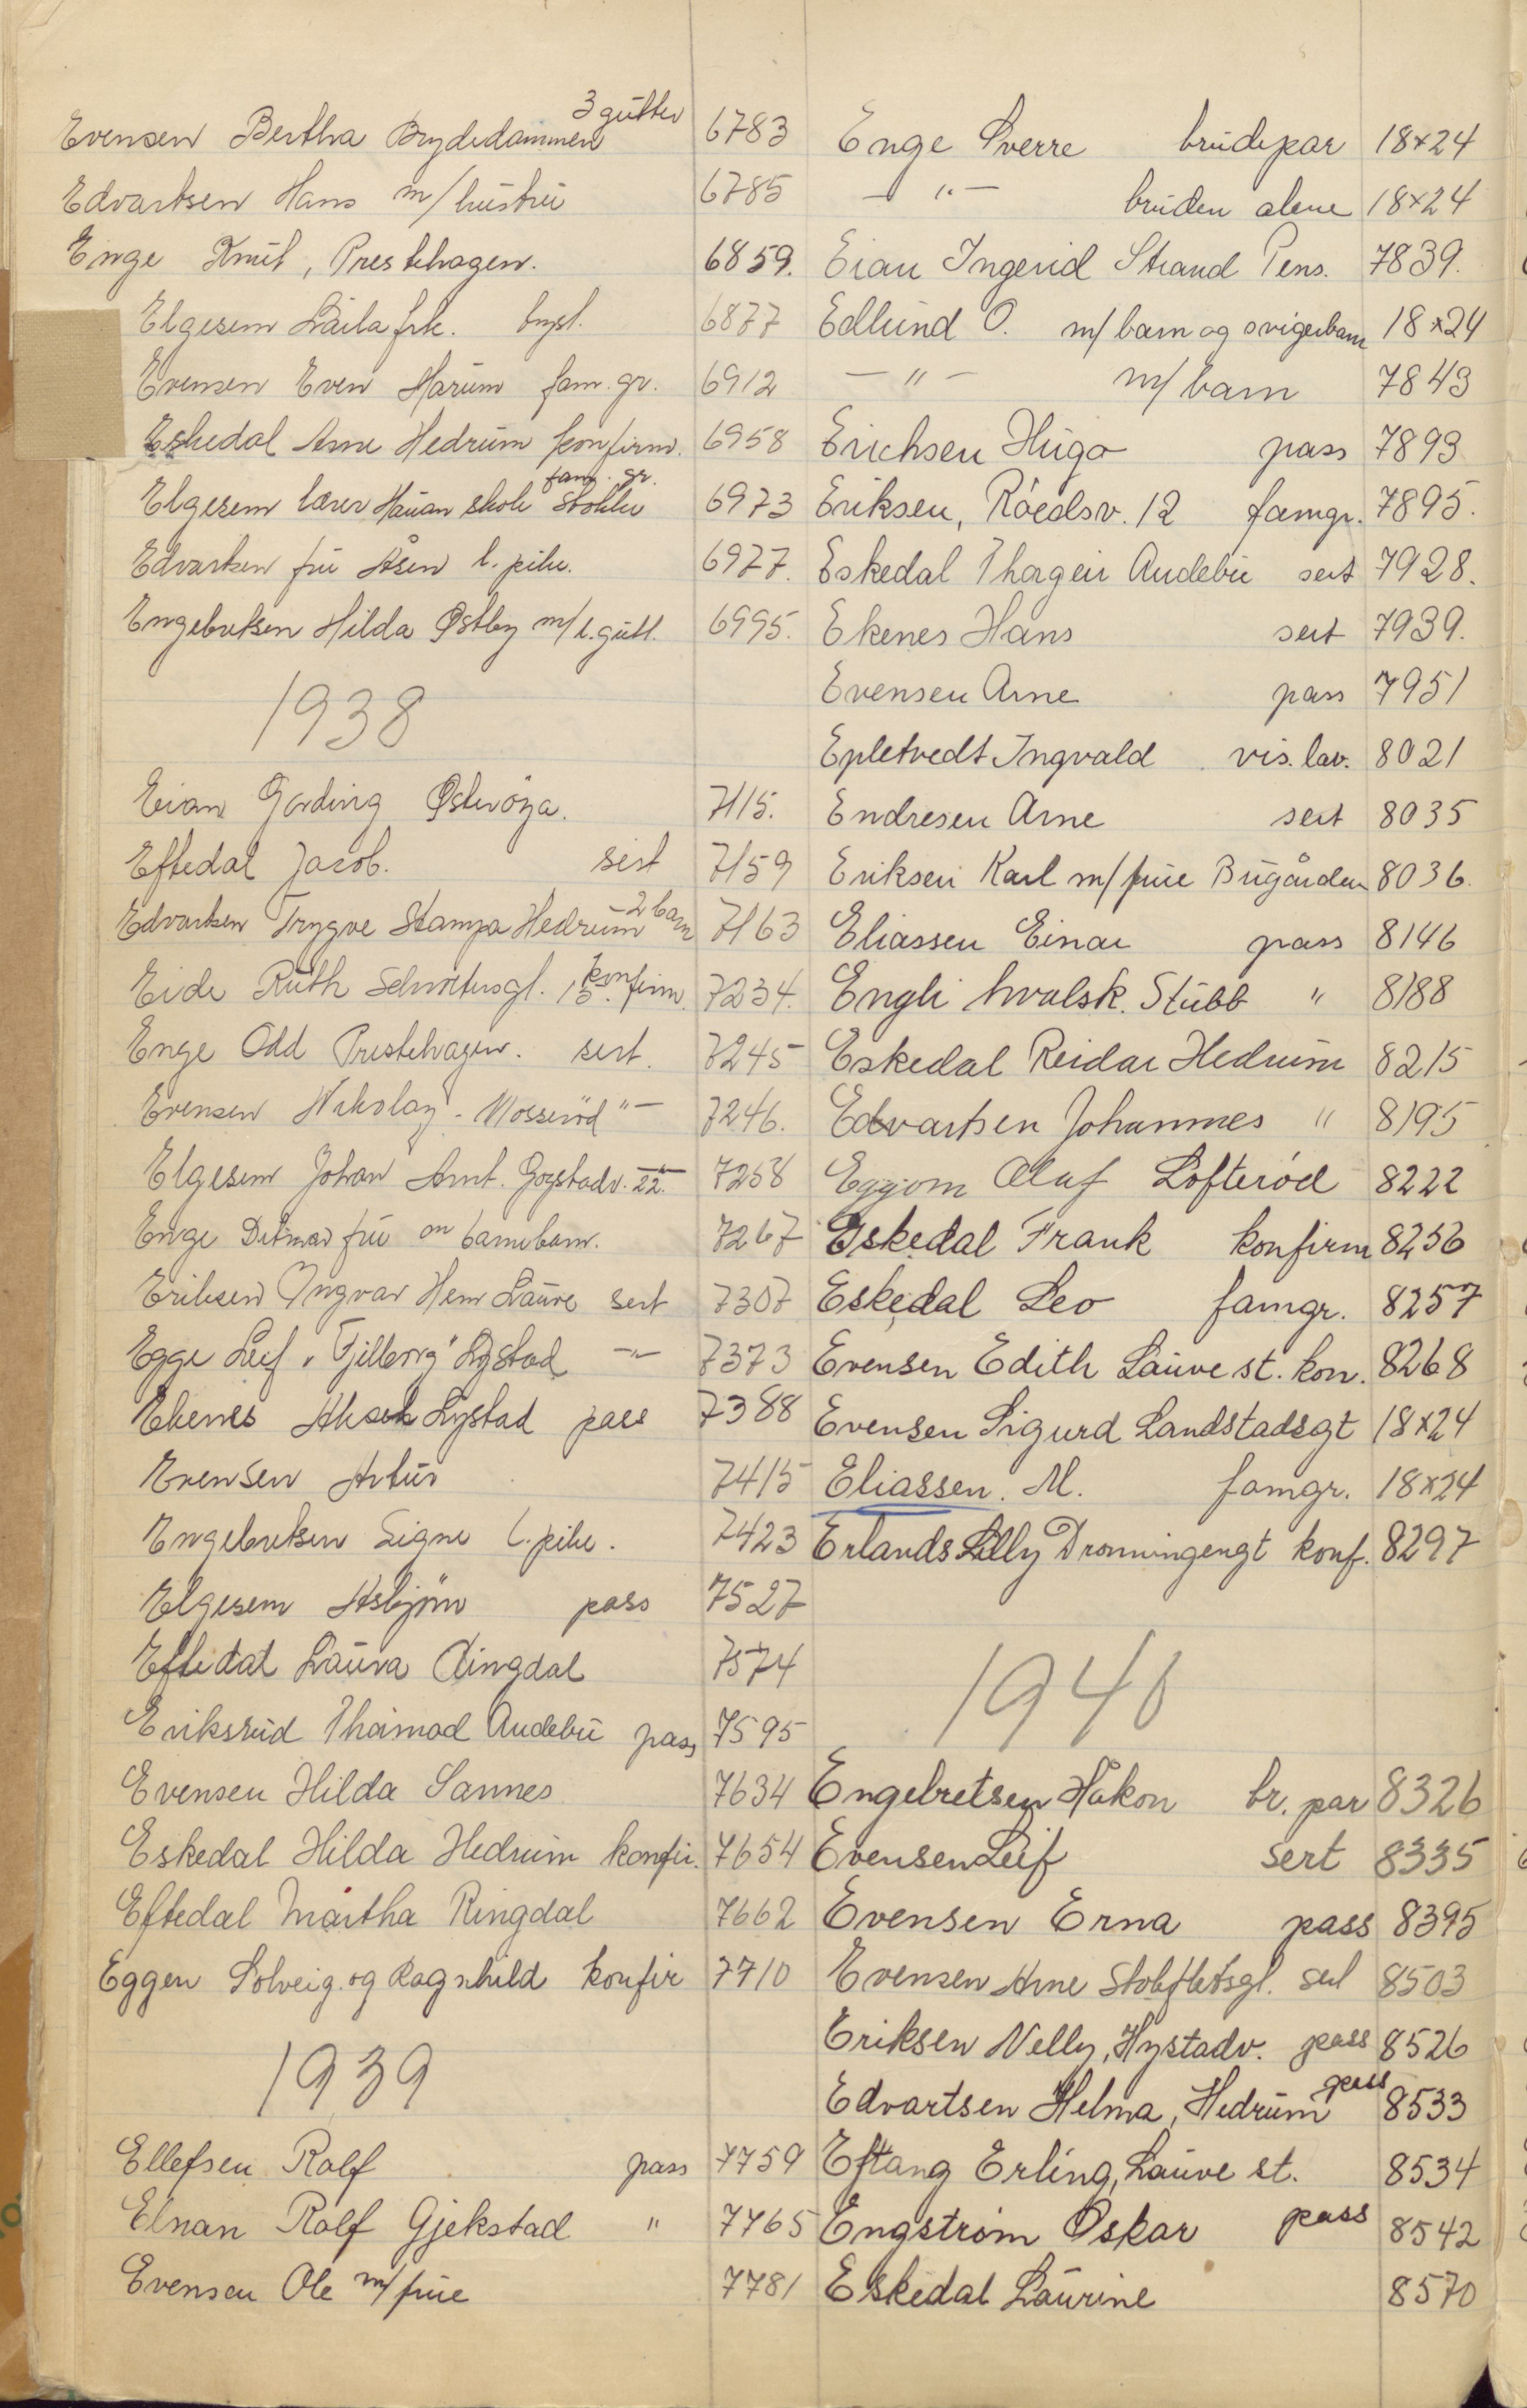 Evensen Bertha Brydedammen 3 gutter 6783
Edvartsen Hans m/hustru 6785
Enge Knut, Prestehagen. 6859.
Elgesem Laila frk. 6877
Evensen Even Marum fam. gr. 6912
Eskedal Arne Hedrum konfirm. 6958
Elgesem lærer Hauan skole Stokke fam. gr. 6973
Edvartsen fru Åsen l. pike. 6977.
Engebretsen Hilda Østby m/l. gutt. 6995.
1938
Eian Gording Østerøya. 7115.
Eftedal Jacob. sert 7159
Edvartsen Trygve Stampa Hedrum 2 barn 7163
Eide Ruth 15. konfirm. 7234.
Enge Odd Prestehagen. sert. 7245
Evensen Nikolay. Mosserød "— 7246.
Elgesem Johan Arnt. Gogstadv. 22. —"— 7258
Enge Ditmar fru m barnebarn. 7267
Eriksen Yngvar Hem Lauve sert 7307
Egge Leif "Fjellborg" Lystad —"— 7373
Ekenes Lystad pass 7388
Evensen Artur 7415
Engebretsen Signe l. pike. 7423
Elgesem Asbjørn pass 7527
Eftedal Laura Ringdal 7574
Eriksrud Thormod Andebu pass 7595
Evensen Hilda Sannes 7634
Eskedal Hilda Hedrum konfir. 7654
Eftedal Martha Ringdal 7662
Eggen Solveig. og Ragnhild konfir 7710
1939
Ellefsen Rolf pass 7759
Elnan Rolf Gjekstad " 7765
Evensen Ole m/frue 7781
Enge Sverre brudepar 18x24
— " — bruden alene 18x24
Eian Ingerid Strand Pens. 7839.
Edlund O. m/barn og svigerbarn 18x24
— " — m/barn 7843
Erichsen Hugo pass 7893
Eriksen, Råedsv. 12 famgr. 7895.
Eskedal Thorgeir Andebu sert 7928.
Ekenes Hans sert 7939.
Evensen Arne pass 7951
Epletvedt Ingvald vis. lav. 8021
Endresen Arne sert 8035
Eriksen Karl m/frue Bugården 8036.
Eliassen Einar pass 8146
Engli hvalsk. Stubb " 8188
Eskedal Reidar Hedrum 8215
Edvartsen Johannes " 8195
Eggom Olaf Lofterød 8222
Eskedal Frank konfirm 8256
Eskedal Leo famgr. 8257
Evensen Edith Lauve st. kon. 8268
Evensen Sigurd Landstadsgt 18x24
Eliassen. M. famgr. 18x24
Erlands Lilly Dronningengt konf. 8297
1940
Engebretsen Håkon br. par 8326
Evensen Leif sert 8335
Evensen Erna pass 8395
Evensen Arne sert 8503
Eriksen Nelly, Hystadv. pass 8526
Edvartsen Helma, Hedrum pass 8533
Eftang Erling, Lauve st. 8534
Engstrøm Oskar pass 8542
Eskedal Laurine 8570